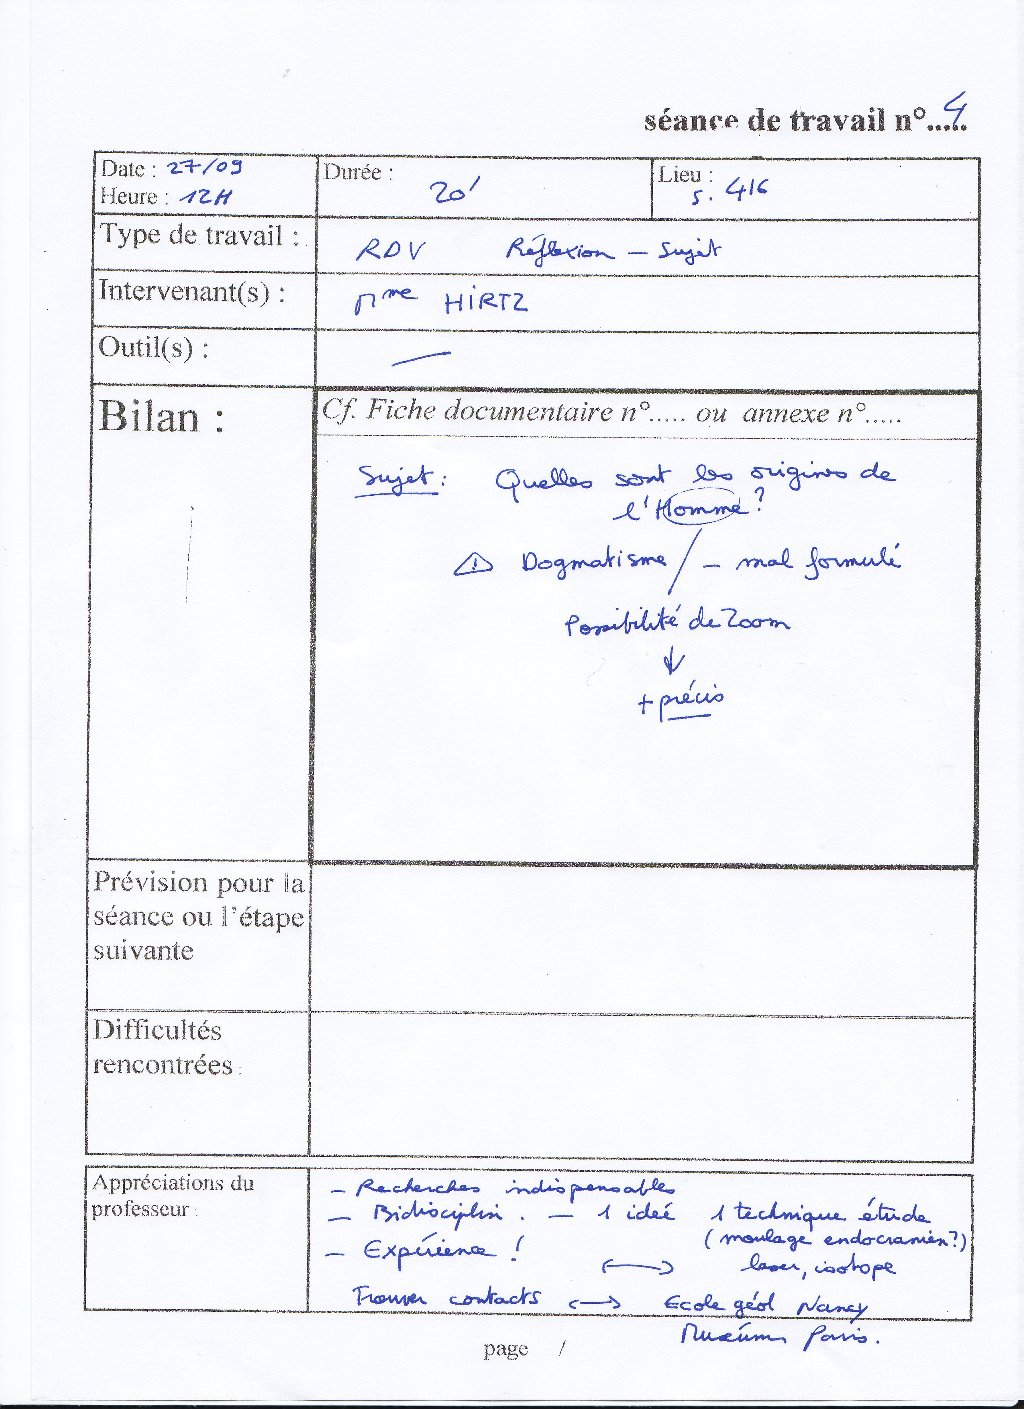 séance de travail n°..... 4
Date : 27/09
Heure : 12H
Durée : 20'
Lieu : s. 416
Type de travail : RDV Réflexion – Sujet
Intervenant(s) : Mme HIRTZ
Outil(s) : —
Bilan :
Cf. Fiche documentaire n°..... ou annexe n°.....
Sujet : Quelles sont les origines de
l'Homme ?
⚠ Dogmatisme / – mal formulé
Possibilité de Zoom
↓
+ précis
Prévision pour la
séance ou l'étape
suivante
Difficultés
rencontrées :
Appréciations du
professeur :
– Recherches indispensables
– Bidisciplin. – 1 idée 1 technique étude
(moulage endocranien?)
– Expérience !
↔ laser, isotope
Trouver contacts ↔ Ecole géol Nancy
Muséum Paris.
page /